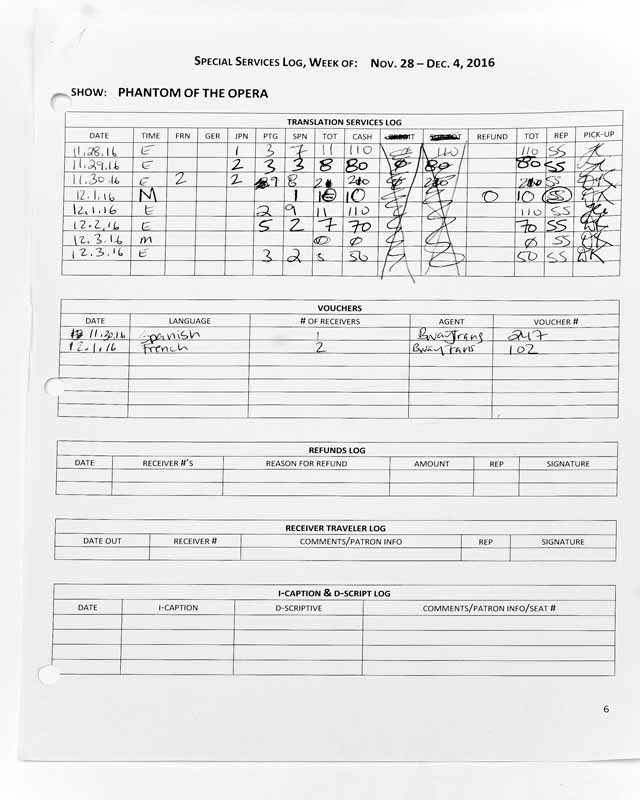 SPECIAL SERVICES LOG, WEEK OF: NOV. 28 – DEC. 4, 2016
SHOW: PHANTOM OF THE OPERA
TRANSLATION SERVICES LOG
DATE TIME FRN GER JPN PTG SPN TOT CASH REFUND TOT REP PICK-UP
11.28.16 E 1 3 7 11 110 110 110 SS
11.29.16 E 2 3 3 8 80 0 80 80 SS
11.30.16 E 2 2 9 8 SS
12.1.16 M 1 10 0 10 SS
12.1.16 E 2 9 11 110 110 SS
12.2.16 E 5 2 7 70 70 SS
12.3.16 m 0 0 0 SS
12.3.16 E 3 2 5 50 50 SS
VOUCHERS
DATE LANGUAGE # OF RECEIVERS AGENT VOUCHER #
11.30.16 Spanish 1 BwayTrans 247
12.1.16 French 2 BwayTrans 102
REFUNDS LOG
DATE RECEIVER #'S REASON FOR REFUND AMOUNT REP SIGNATURE
RECEIVER TRAVELER LOG
DATE OUT RECEIVER # COMMENTS/PATRON INFO REP SIGNATURE
I-CAPTION & D-SCRIPT LOG
DATE I-CAPTION D-SCRIPTIVE COMMENTS/PATRON INFO/SEAT #
6